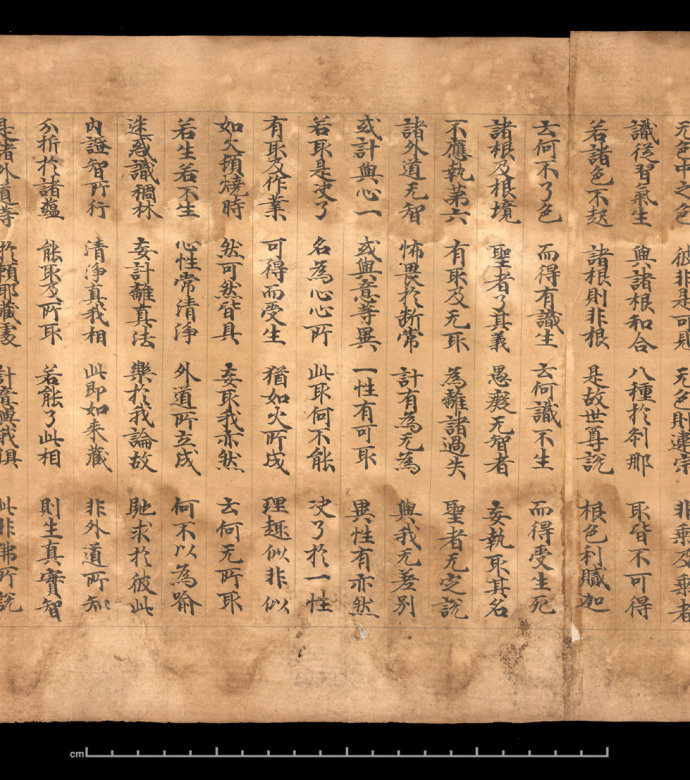 无色中之色 彼非是可見 无色則違宗 非乘及乘者
識從習氣生 與諸根和合 八種於剎那 取皆不可得
若諸色不起 諸根則非根 是故世尊說 根色剎膩迦
云何不了色 而得有識生 云何識不生 而得受生死
諸根及根境 聖者了其義 愚癡无智者 妄執取其名
不應執第六 有取及无取 為離諸過失 聖者无定說
諸外道无智 怖畏於斷常 計有為无為 與我无差別
或計與心一 或與意等異 一性有可取 異性有亦然
若取是決了 名為心心所 此取何不能 決了於一性
有取及作業 可得而受生 猶如火所成 理趣似非似
如火頓燒時 然可然皆具 妄取我亦然 云何无所取
若生若不生 心性常清淨 外道所立成 何不以為喻
迷惑識稠林 妄計離真法 樂於我論故 馳求於彼此
內證智所行 清淨真我相 此即如來藏 非外道所知
分析於諸蘊 能取及所取 若能了此相 則生真實智
是諸外道等 於賴耶藏處 計意與我俱 此非佛所說
cm